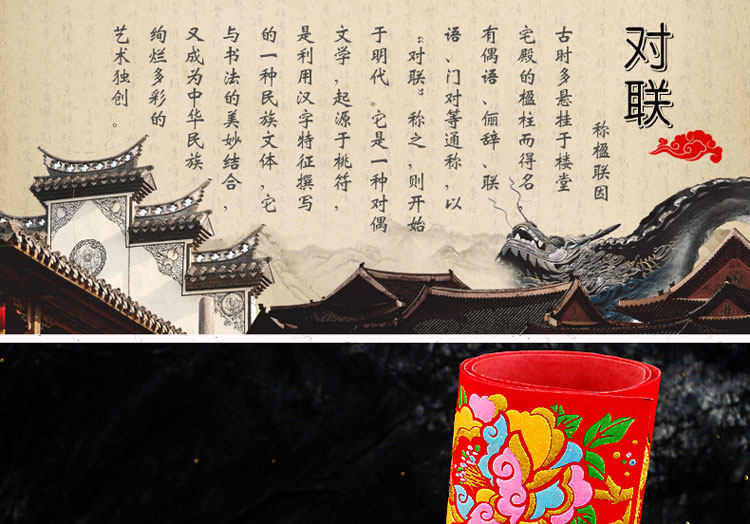 对联
称楹联因
古时多悬挂于楼堂
宅殿的楹柱而得名
有偶语、俪辞、联
语、门对等通称，以
“对联”称之，则开始
于明代。它是一种对偶
文学，起源于桃符，
是利用汉字特征撰写
的一种民族文体，它
与书法的美妙结合，
又成为中华民族
绚烂多彩的
艺术独创。